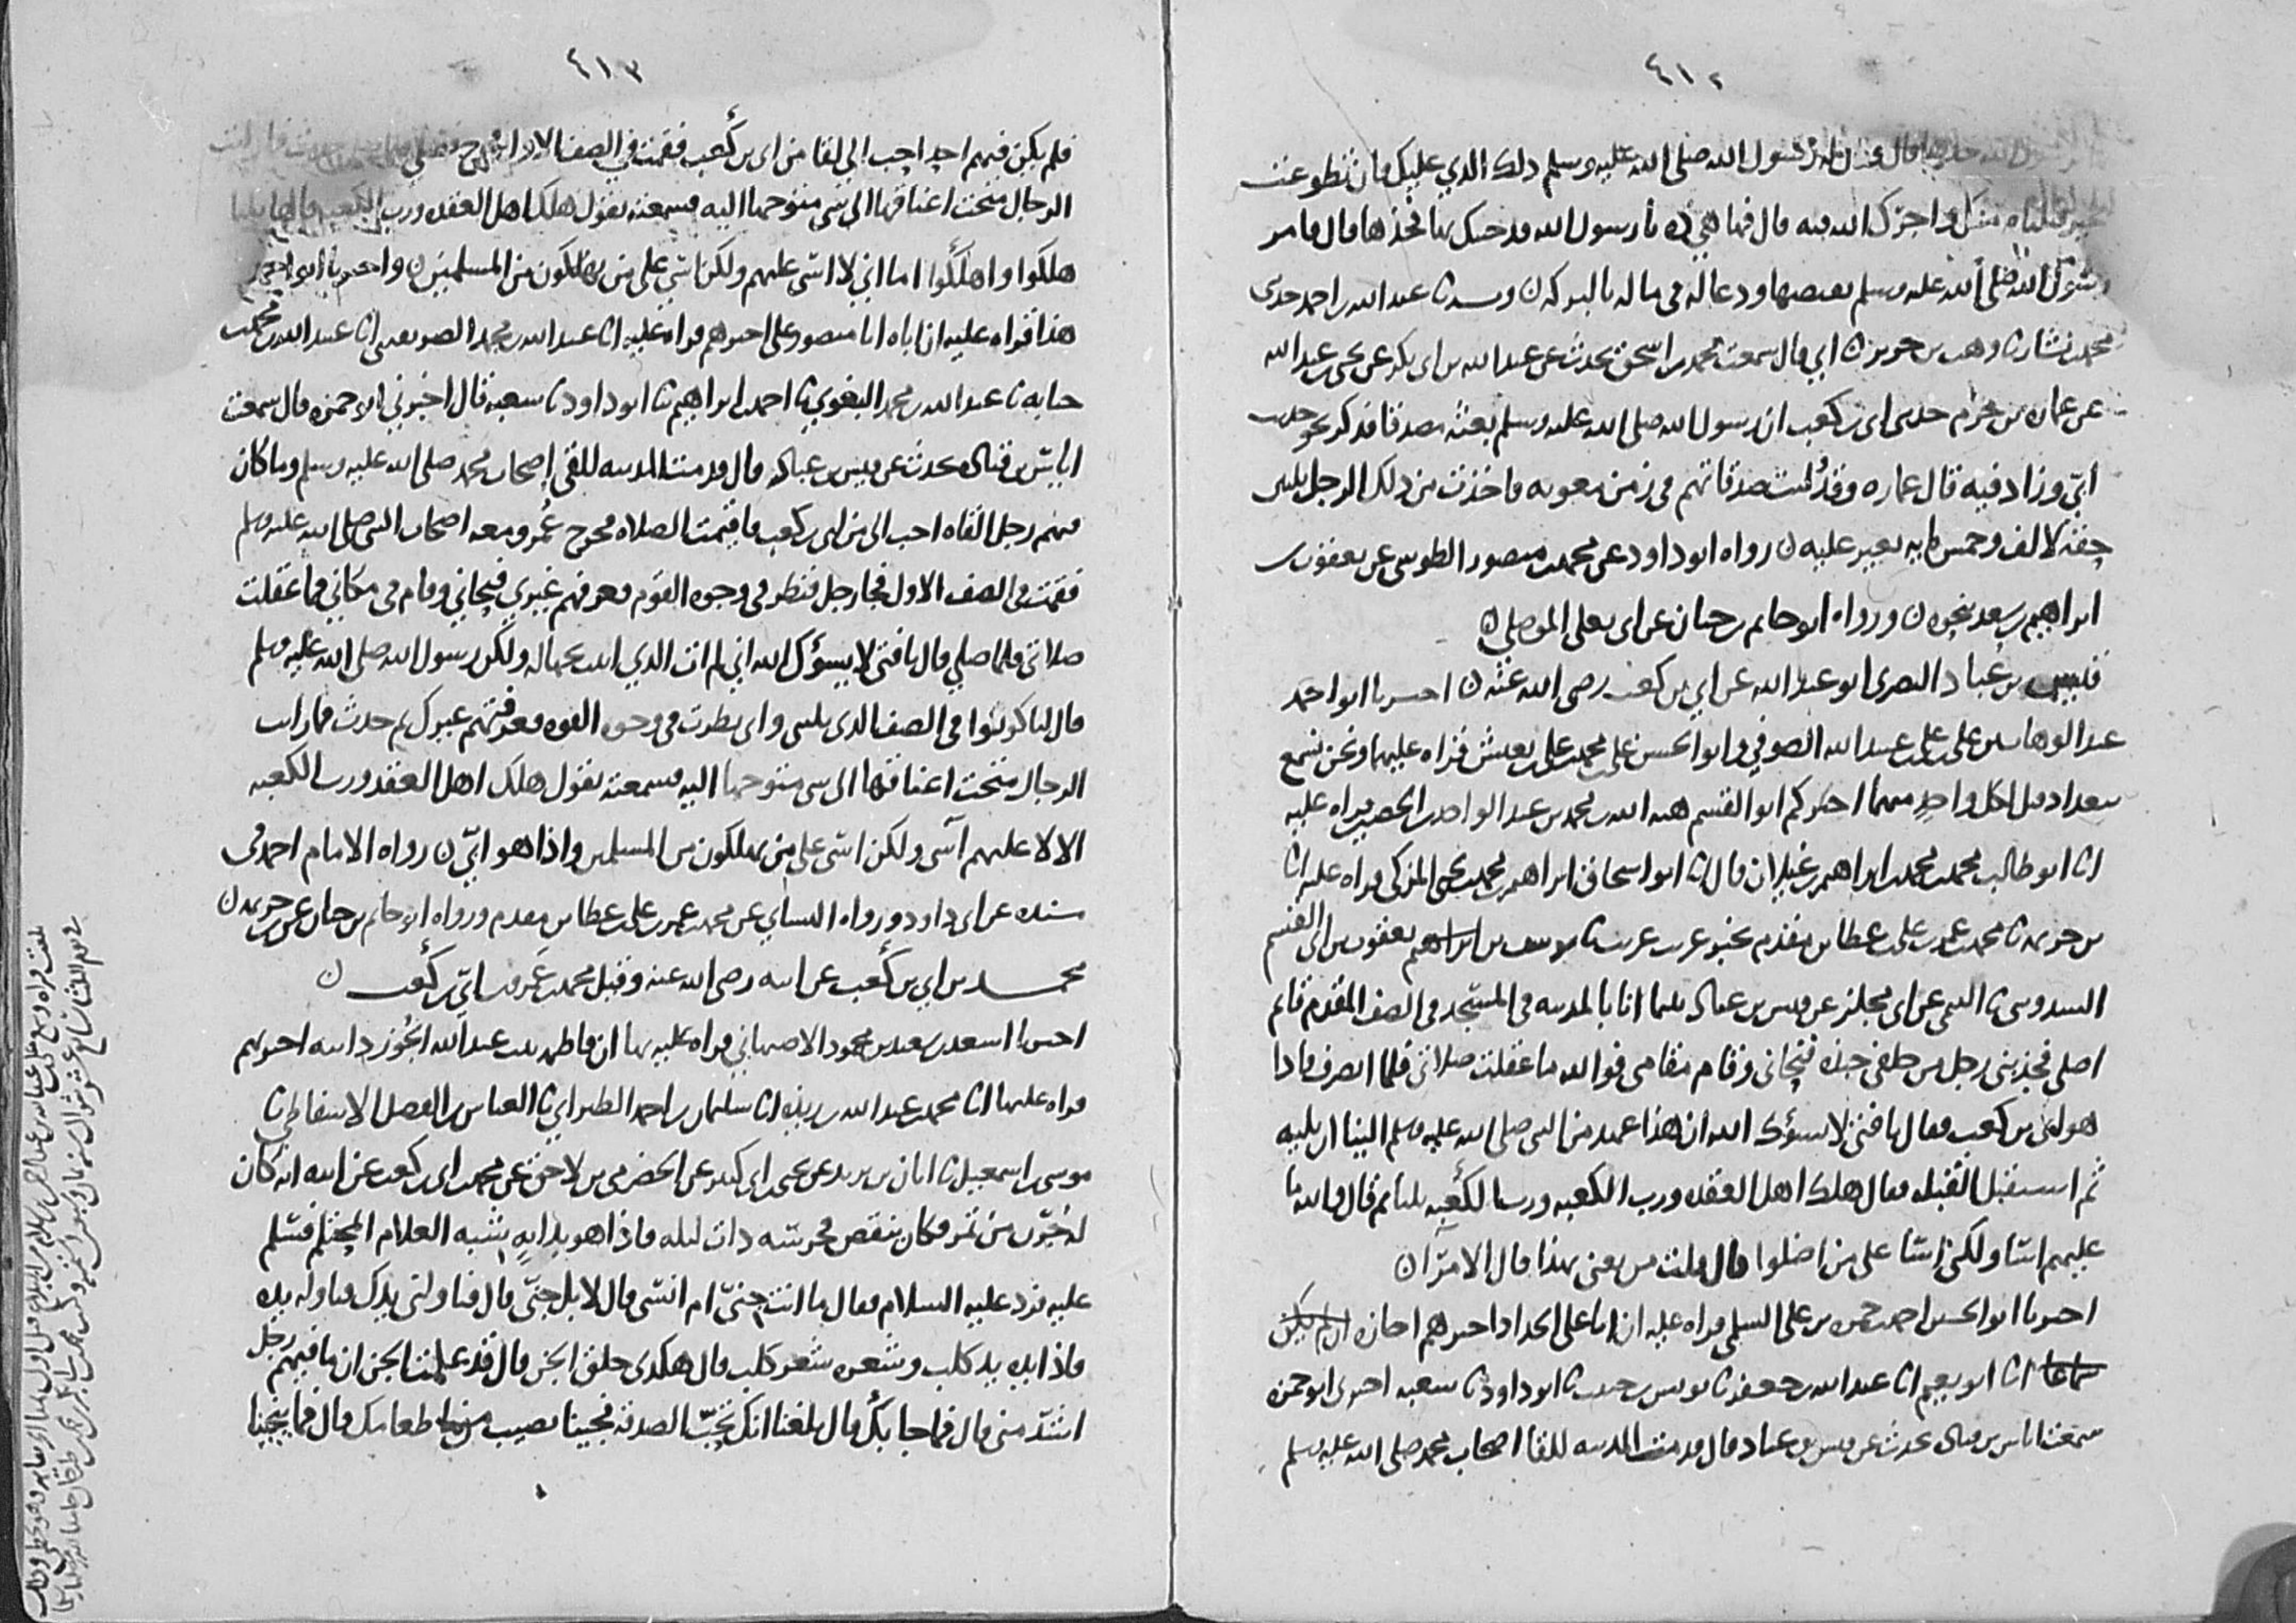 ٤١٢
فقال له رسول الله صلى الله عليه وسلم ذلك الذي عليك فان تطوعت
بخير قبلناه منك واجرك الله فيه قال فها هي ذه يا رسول الله قد جيتك بها فخذها قال فامر
رسول الله صلى الله عليه وسلم بقبضها ودعا له في ماله بالبركه ن وبه ثنا عبد الله بن احمد حدثني
محمد بن بشار ثنا وهب بن جرير ثنا ابي قال سمعت محمد بن اسحق يحدث عن عبد الله بن ابي بكر عن يحيى بن عبد الله
عن عماره بن حزم حدثني ابي بن كعب ان رسول الله صلى الله عليه وسلم بعثه مصدقا فذكر نحو حديث
ابي وزاد فيه قال عماره وقد وليت صدقاتهم في زمن معويه فاخذت من ذلك الرجل ثلثين
حقه لالف وخمس مايه بعير عليه ن رواه ابو داود عن محمد بن منصور الطوسي عن يعقوب بن
ابراهيم بن سعد بنحوه ن ورواه ابو حاتم بن حبان عن ابي يعلى الموصلي ن
قيس بن عباد البصري ابو عبد الله عن ابي بن كعب رضي الله عنه ن اخبرنا ابو احمد
عبد الوهاب بن علي بن علي بن عبيد الله الصوفي وابو الحسن علي بن محمد بن علي بن يعيش قراه عليهما ونحن نسمع
ببغداد قيل لكل واحد منهما اخبركم ابو القسم هبه الله بن محمد بن عبد الواحد بن الحصين قراه عليه
انا ابو طالب محمد بن محمد بن ابراهيم بن غيلان قال انا ابو اسحاق ابراهيم بن محمد بن يحيى المزكي قراه عليه انا
بن خزيمه ثنا محمد بن عمر بن علي بن عطا بن مقدم بخبر غريب غريب ثنا يوسف بن ابراهيم يعقوب بن ابي القسم
السدوسي ثنا التيمي عن ابي مجلز عن قيس بن عباد بينما انا بالمدينه في المسجد في الصف المقدم قايم
اصلي فجبذني رجل من خلفي جبذه فنحاني وقام مقامي فوالله ما عقلت صلاتي فلما انصرف فاذا
هو ابي بن كعب فقال يا فتى لا يسؤك الله ان هذا عهد من النبي صلى الله عليه وسلم الينا ان نليه
ثم استقبل القبله فقال هلك اهل العقده ورب الكعبه ورب الكعبه ثلثا ثم قال والله ما
عليهم اسا ولكن اسا على من اضلوا قال قلت من يعني بهذا قال الامرا ن
اخبرنا ابو الحسن احمد بن حمزه بن علي السلمي قراه عليه ان ابا علي الحداد اخبرهم اجازه ان لم يكن
سماعا انا ابو نعيم انا عبد الله بن جعفر ثنا يونس بن حبيب ثنا ابو داود ثنا شعبه اخبرني ابو حمزه
سمعت اياس بن قتاده يحدث عن قيس بن عباد قال قدمت المدينه للقا اصحاب محمد صلى الله عليه وسلم
٤١٣
فلم يكن فيهم احد احب الي لقا من ابي بن كعب فقمت في الصف الاول فخرج فما رايت
الرجال متحت اعناقها الى شي متوجها اليه فسمعته يقول هلك اهل العقده ورب الكعبه قالها ثلثا
هلكوا واهلكوا اما اني لا اسى عليهم ولكن اسى على من يهلكون من المسلمين ن واخبرنا ابو احمد
هذا قراه عليه ان اباه ابا منصور علي اخبرهم قراه عليه انا عبد الله بن محمد الصريفيني انا عبيد الله بن محمد بن
حبابه ثنا عبد الله بن محمد البغوي ثنا احمد بن ابراهيم ثنا ابو داود ثنا شعبه قال اخبرني ابو حمزه قال سمعت
اياس بن قتاده يحدث عن قيس بن عباد قال قدمت المدينه للقي اصحاب محمد صلى الله عليه وسلم وما كان
منهم رجل القاه احب الي من ابي بن كعب فاقيمت الصلاه فخرج عمر ومعه اصحاب النبي صلى الله عليه وسلم
فقمت في الصف الاول فجا رجل فنظر في وجوه القوم فعرفهم غيري فنحاني وقام في مكاني فما عقلت
صلاتي فلما صلى قال يا فتى لا يسؤك الله اني لم ات الذي اتيت بجهاله ولكن رسول الله صلى الله عليه وسلم
قال لنا كونوا في الصف الذي يليني واني نظرت في وجوه القوم فعرفتهم غيرك ثم حدث فما رايت
الرجال متحت اعناقها الى شي متوجها اليه فسمعته يقول هلك اهل العقد ورب الكعبه
الا لا عليهم آسى ولكن اسى على من يهلكون من المسلمين واذا هو ابي ن رواه الامام احمد في
مسنده عن ابي داود ورواه النساي عن محمد بن عمر بن علي بن عطا بن مقدم ورواه ابو حاتم بن حبان عن بن خزيمه ن
محمد بن ابي بن كعب عن ابيه رضي الله عنه وقيل محمد بن عمرو بن ابي بن كعب ن
اخبرنا اسعد بن سعيد بن محمود الاصبهاني قراه عليه بها ان فاطمه بنت عبد الله الجوزدانيه اخبرتهم
قراه عليها انا محمد بن عبد الله بن ريذه انا سليمان بن احمد الطبراني ثنا العباس بن الفضل الاسفاطي ثنا
موسى بن اسمعيل ثنا ابان بن يزيد عن يحيى بن ابي كثير عن الحضرمي بن لاحق عن محمد بن ابي بن كعب عن ابيه انه كان
له جرن من تمر وكان ينقص فحرسه ذات ليله فاذا هو بدابه شبه الغلام المحتلم فسلم
عليه فرد عليه السلام فقال ما انت جني ام انسي قال لا بل جني قال فناولني يدك فناوله يده
فاذا يده يد كلب وشعره شعر كلب قال هكذى خلق الجن قال قد علمت الجن ان ما فيهم رجل
اشد مني قال فما جا بك قال بلغنا انك تحب الصدقه فجينا نصيب من طعامك قال فما ينجينا